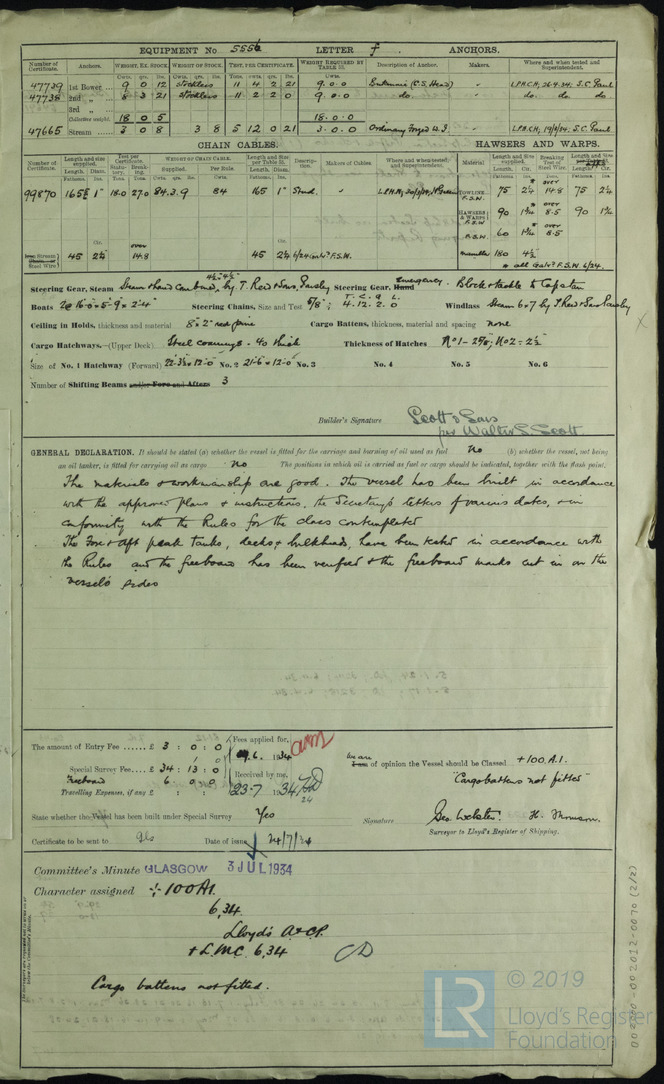 EQUIPMENT No 5556 LETTER f ANCHORS.
Number of Certificate. Anchors. WEIGHT, EX. STOCK. WEIGHT OF STOCK. TEST, PER CERTIFICATE. WEIGHT REQUIRED BY TABLE 31. Description of Anchor. Makers. Where and when tested and Superintendent.
Cwts. qrs. lbs. Cwts. qrs. lbs. Tons. cwts. qrs. lbs. Cwts.
47739 1st Bower 9 0 12 Stockless 11 4 2 21 9.0.0 (C.S. Head) " LPH.CH, 26.4.34. J.C. Paul
47738 2nd " 8 3 21 Stockless 11 2 2 0 9.0.0 do. do. do. do.
3rd "
Collective weight 18 0 5 18.0.0
47665 Stream 3 0 8 3 8 5 12 0 21 3.0.0 Ordinary Forged W.I. " J.C. Paul
CHAIN CABLES. HAWSERS AND WARPS.
Number of Certificate. Length and size supplied. Test per Certificate. WEIGHT OF CHAIN CABLE. Length and Size per Table 31. Description. Makers of Cables Where and when tested and Superintendent. Material Length and size supplied. Breaking Test of Steel Wire
Fathoms. Diam. Statutory. Breaking. Supplied. Per Rule. Length. Diam.
99870 165 1" 18.0 27.0 84.3.9 84 165 1" Stud. " TOWLINE F.S.W. 75 2¼ over 14.8 75 2¼
HAWSERS & WARPS F.S.W. 90 1¾ over 8.5 90 1¾
F.S.W. 60 1¾ over 8.5
Stream Steel Wire 45 2¼ over 14.8 45 2¼ 6/24 galv. F.S.W. Manilla 180 4½
* all Galv. F.S.W. 6/24.
Steering Gear, Steam Steam & hand combined, by T. Reid & Sons, Paisley Steering Gear, Hand Emergency. Block & tackle to Capstan
Boats 2 @ 16.0 x 5.9 x 2.4 Steering Chains, Size and Test 5/8"; T. C. Q. L. 4.12.2.0 Windlass Steam 6 x 7 by T. Reid & Sons Paisley
Ceiling in Holds, thickness and material 8 x 2" red pine Cargo Battens, thickness, material and spacing none
Cargo Hatchways.-(Upper Deck) Steel coamings .40 thick Thickness of Hatches No 1 - 2⅝; No 2 - 2½
Size of No. 1 Hatchway (Forward) 22-3½ x 12-0 No. 2 21-6 x 12-0 No. 3 No. 4 No. 5 No. 6
Number of Shifting Beams and/or Fore and Afters 3
Builder's Signature Scott & Sons
per Walter L. Scott
GENERAL DECLARATION. It should be stated (a) whether the vessel is fitted for the carriage and burning of oil used as fuel No (b) whether the vessel, not being
an oil tanker, is fitted for carrying oil as cargo No The positions in which oil is carried as fuel or cargo should be indicated, together with the flash point.
The materials & workmanship are good. The vessel has been built in accordance
with the approved plans & instructions, the Secretary's letters of various dates, & in
conformity with the Rules for the class contemplated
The Fore & Aft peak tanks, decks & bulkheads, have been tested in accordance with
the Rules and the freeboard has been verified & the freeboard marks cut in on the
vessel's sides
The amount of Entry Fee ...... £ 3 : 0 : 0 Fees applied for, 6. 1934
Special Survey Fee.... £ 34 : 13 : 0 Received by me,
Freeboard 6 . 0 . 0 23.7 1934
Travelling Expenses, if any £ : :
We are I am of opinion the Vessel should be Classed +100.A.1.
"Cargo battens not fitted"
State whether the Vessel has been built under Special Survey Yes Signature Geo. Webster. H. Thomson.
Surveyor to Lloyd's Register of Shipping.
Certificate to be sent to Gls Date of issue 24/7/34
Committee's Minute GLASGOW 3 JUL 1934
Character assigned +100A1.
6,34.
Lloyd's A&CP.
+ L.M.C. 6,34
Cargo battens not fitted.
002000-002012-0070 (2/2)
LR © 2019
Lloyd's Register
Foundation